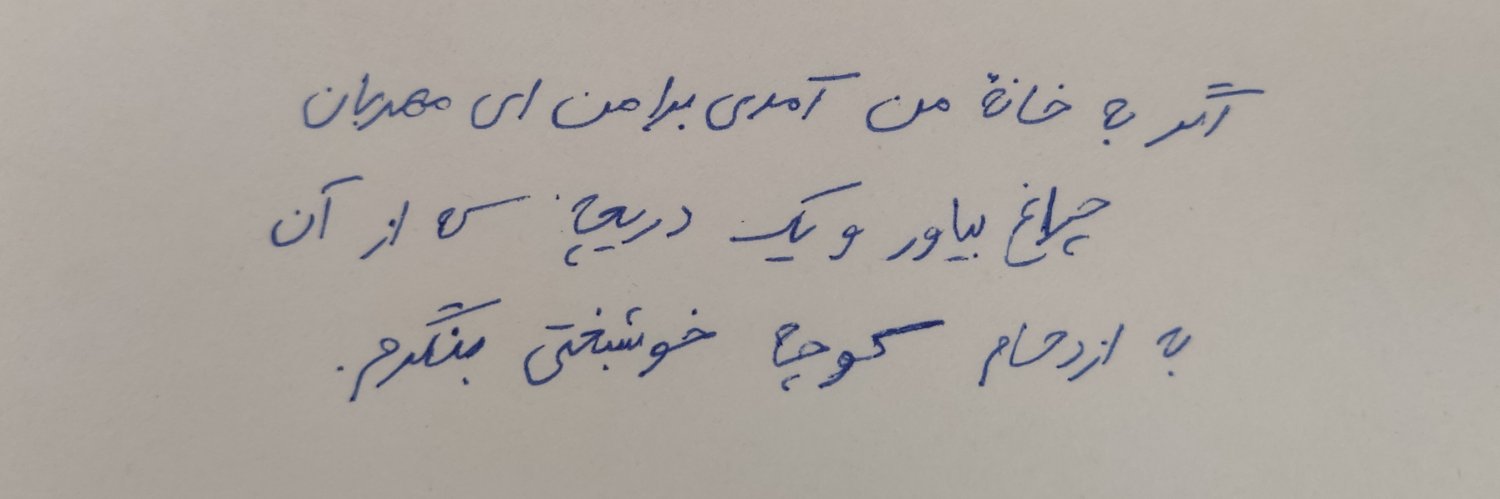 اگر به خانهٔ من آمدی برا من ای مهربان
چراغ بیاور و یک دریچه که از آن
به ازدحام کوچه خوشبختی بنگرم.